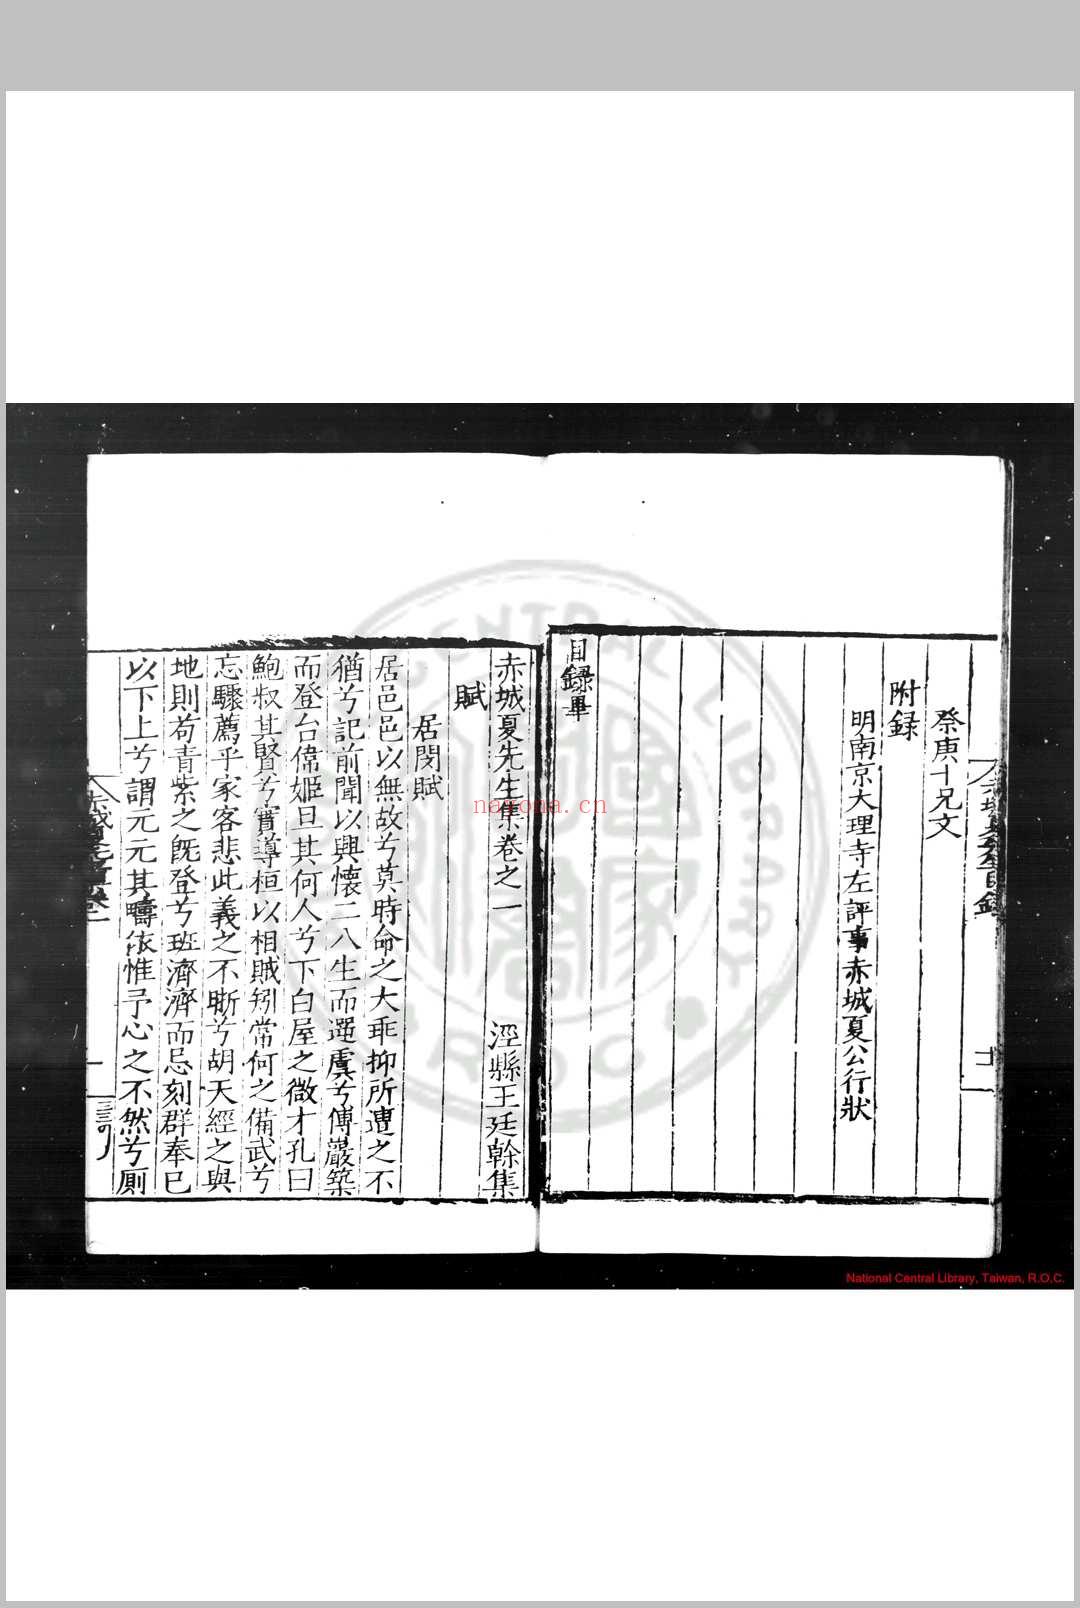 祭庚十兄文
附録
明南京大理寺左評事赤城夏公行狀
目録畢
赤城夏先生集卷之一
涇縣王廷幹集
賦
居閔賦
居邑邑以無故兮莫時命之大乖抑所遭之不
猶兮記前聞以興懷二八生而遇虞兮傅巖築
而登台偉姬旦其何人兮下白屋之微才孔曰
鮑叔其賢兮實導桓以相賊矧常何之備武兮
忘驟薦乎家客悲此義之不晰兮胡天經之與
地則苟青紫之旣登兮班濟濟而忌刻群奉已
以下上兮謂元元其疇依惟予心之不然兮厠
NATIONAL CENTRAL LIBRARY
R O C
nayona.cn
National Central Library, Taiwan, R.O.C.